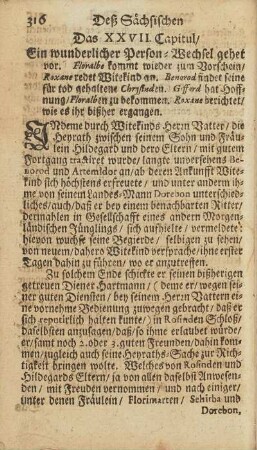 316 Deß Sächsischen
Das XXVII. Capitul/
Ein wunderlicher Person-Wechsel gehet
vor. Floralbo kommt wieder zum Vorschein/
Roxane redet Witekind an. Benorad findet seine
für tod gehaltene Chrysstaden. Gifford hat Hoff-
nung/ Floralben zu bekommen. Roxane berichtet/
wie es ihr bißher ergangen.
INdeme durch Witekinds Herrn Vatter/ die
Heyrath zwischen seinem Sohn und Fräu-
lein Hildegard und dero Eltern/ mit gutem
Fortgang tractiret wurde/ langte unversehens Be-
norod und Artemidor an/ ab deren Ankunfft Wite-
kind sich höchstens erfreute/ und unter andern ih-
me von seinem Landes-Mann Dorebon unterschied-
liches/ auch/ daß er bey einem benachbarten Ritter/
dermahlen in Gesellschafft eines andern Morgen-
ländischen Jünglings/ sich auffhielte/ vermeldete:
hievon wuchse seine Begierde/ selbigen zu sehen/
von neuem/ dahero Witekind versprache/ ihne erster
Tagen dahin zu führen/ wo er anzutreffen.
Zu solchem Ende schickte er seinen bißherigen
getreuen Diener Hartmann/ (deme er/ wegen sei-
ner guten Diensten/ bey seinem Herrn Vattern ei-
ne vornehme Bedienung zuwegen gebracht/ daß er
sich reputirlich halten kunte/) in Rosinden Schloß/
daselbsten anzusagen/ daß/ so ihme erlaubet würde/
er/ samt noch 2. oder 3. guten Freunden/ dahin kom-
men/ zugleich auch seine Heyraths-Sache zur Rich-
tigkeit bringen wolte. Welches von Rosinden und
Hildegards Eltern/ ja von allen daselbst Anwesen-
den/ mit Freuden vernommen/ und nach einiger/
unter denen Fräulein/ Florimarten/ Sehirba und
Dorebon,